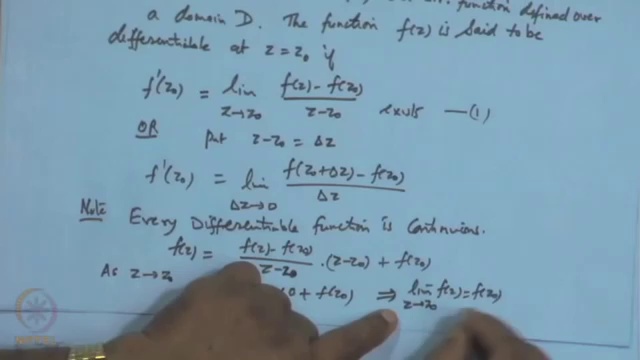 function defined over
a domain D. The function f(z) is said to be
differentiable at z = z₀ if
f'(z₀) = lim z→z₀ (f(z) - f(z₀))/(z - z₀) exists —(1)
OR put z - z₀ = Δz
f'(z₀) = lim Δz→0 (f(z₀+Δz) - f(z₀))/Δz
Note Every Differentiable function is Continuous.
f(z) = (f(z) - f(z₀))/(z - z₀) . (z - z₀) + f(z₀)
As z→z₀
0 + f(z₀) ⇒ lim z→z₀ f(z) = f(z₀)